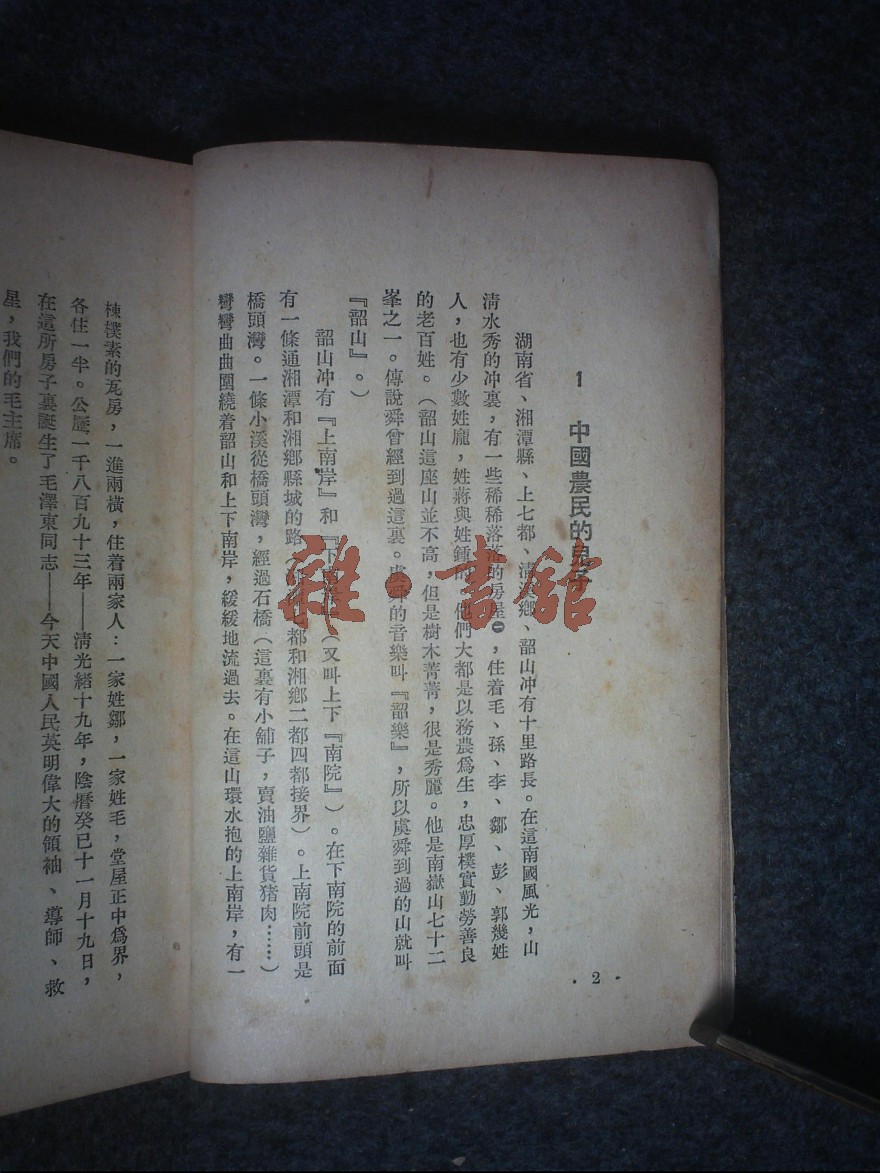 1 中國農民的兒子
湖南省、湘潭縣、上七都、清溪鄉、韶山冲有十里路長。在這南國風光，山
清水秀的冲裏，有一些稀稀落落的房屋㊀，住着毛、孫、李、鄒、彭、郭幾姓
人，也有少數姓龐，姓蔣與姓鍾的，他們大都是以務農爲生，忠厚樸實勤勞善良
的老百姓。（韶山這座山並不高，但是樹木菁菁，很是秀麗。他是南嶽山七十二
峯之一。傳說舜曾經到過這裏。虞舜的音樂叫『韶樂』，所以虞舜到過的山就叫
『韶山』。）
韶山冲有『上南岸』和『下南岸』（又叫上下『南院』）。在下南院的前面
有一條通湘潭和湘鄉縣城的路（上七都和湘鄉二都四都接界）。上南院前頭是
橋頭灣。一條小溪從橋頭灣，經過石橋（這裏有小舖子，賣油鹽雜貨猪肉……）
彎彎曲曲圍繞着韶山和上下南岸，緩緩地流過去。在這山環水抱的上南岸，有一
· 2 ·
棟樸素的瓦房，一進兩橫，住着兩家人：一家姓鄒，一家姓毛，堂屋正中爲界，
各住一半。公歷一千八百九十三年——清光緒十九年，陰曆癸巳十一月十九日，
在這所房子裏誕生了毛澤東同志——今天中國人民英明偉大的領袖、導師、救
星，我們的毛主席。
雜·書館